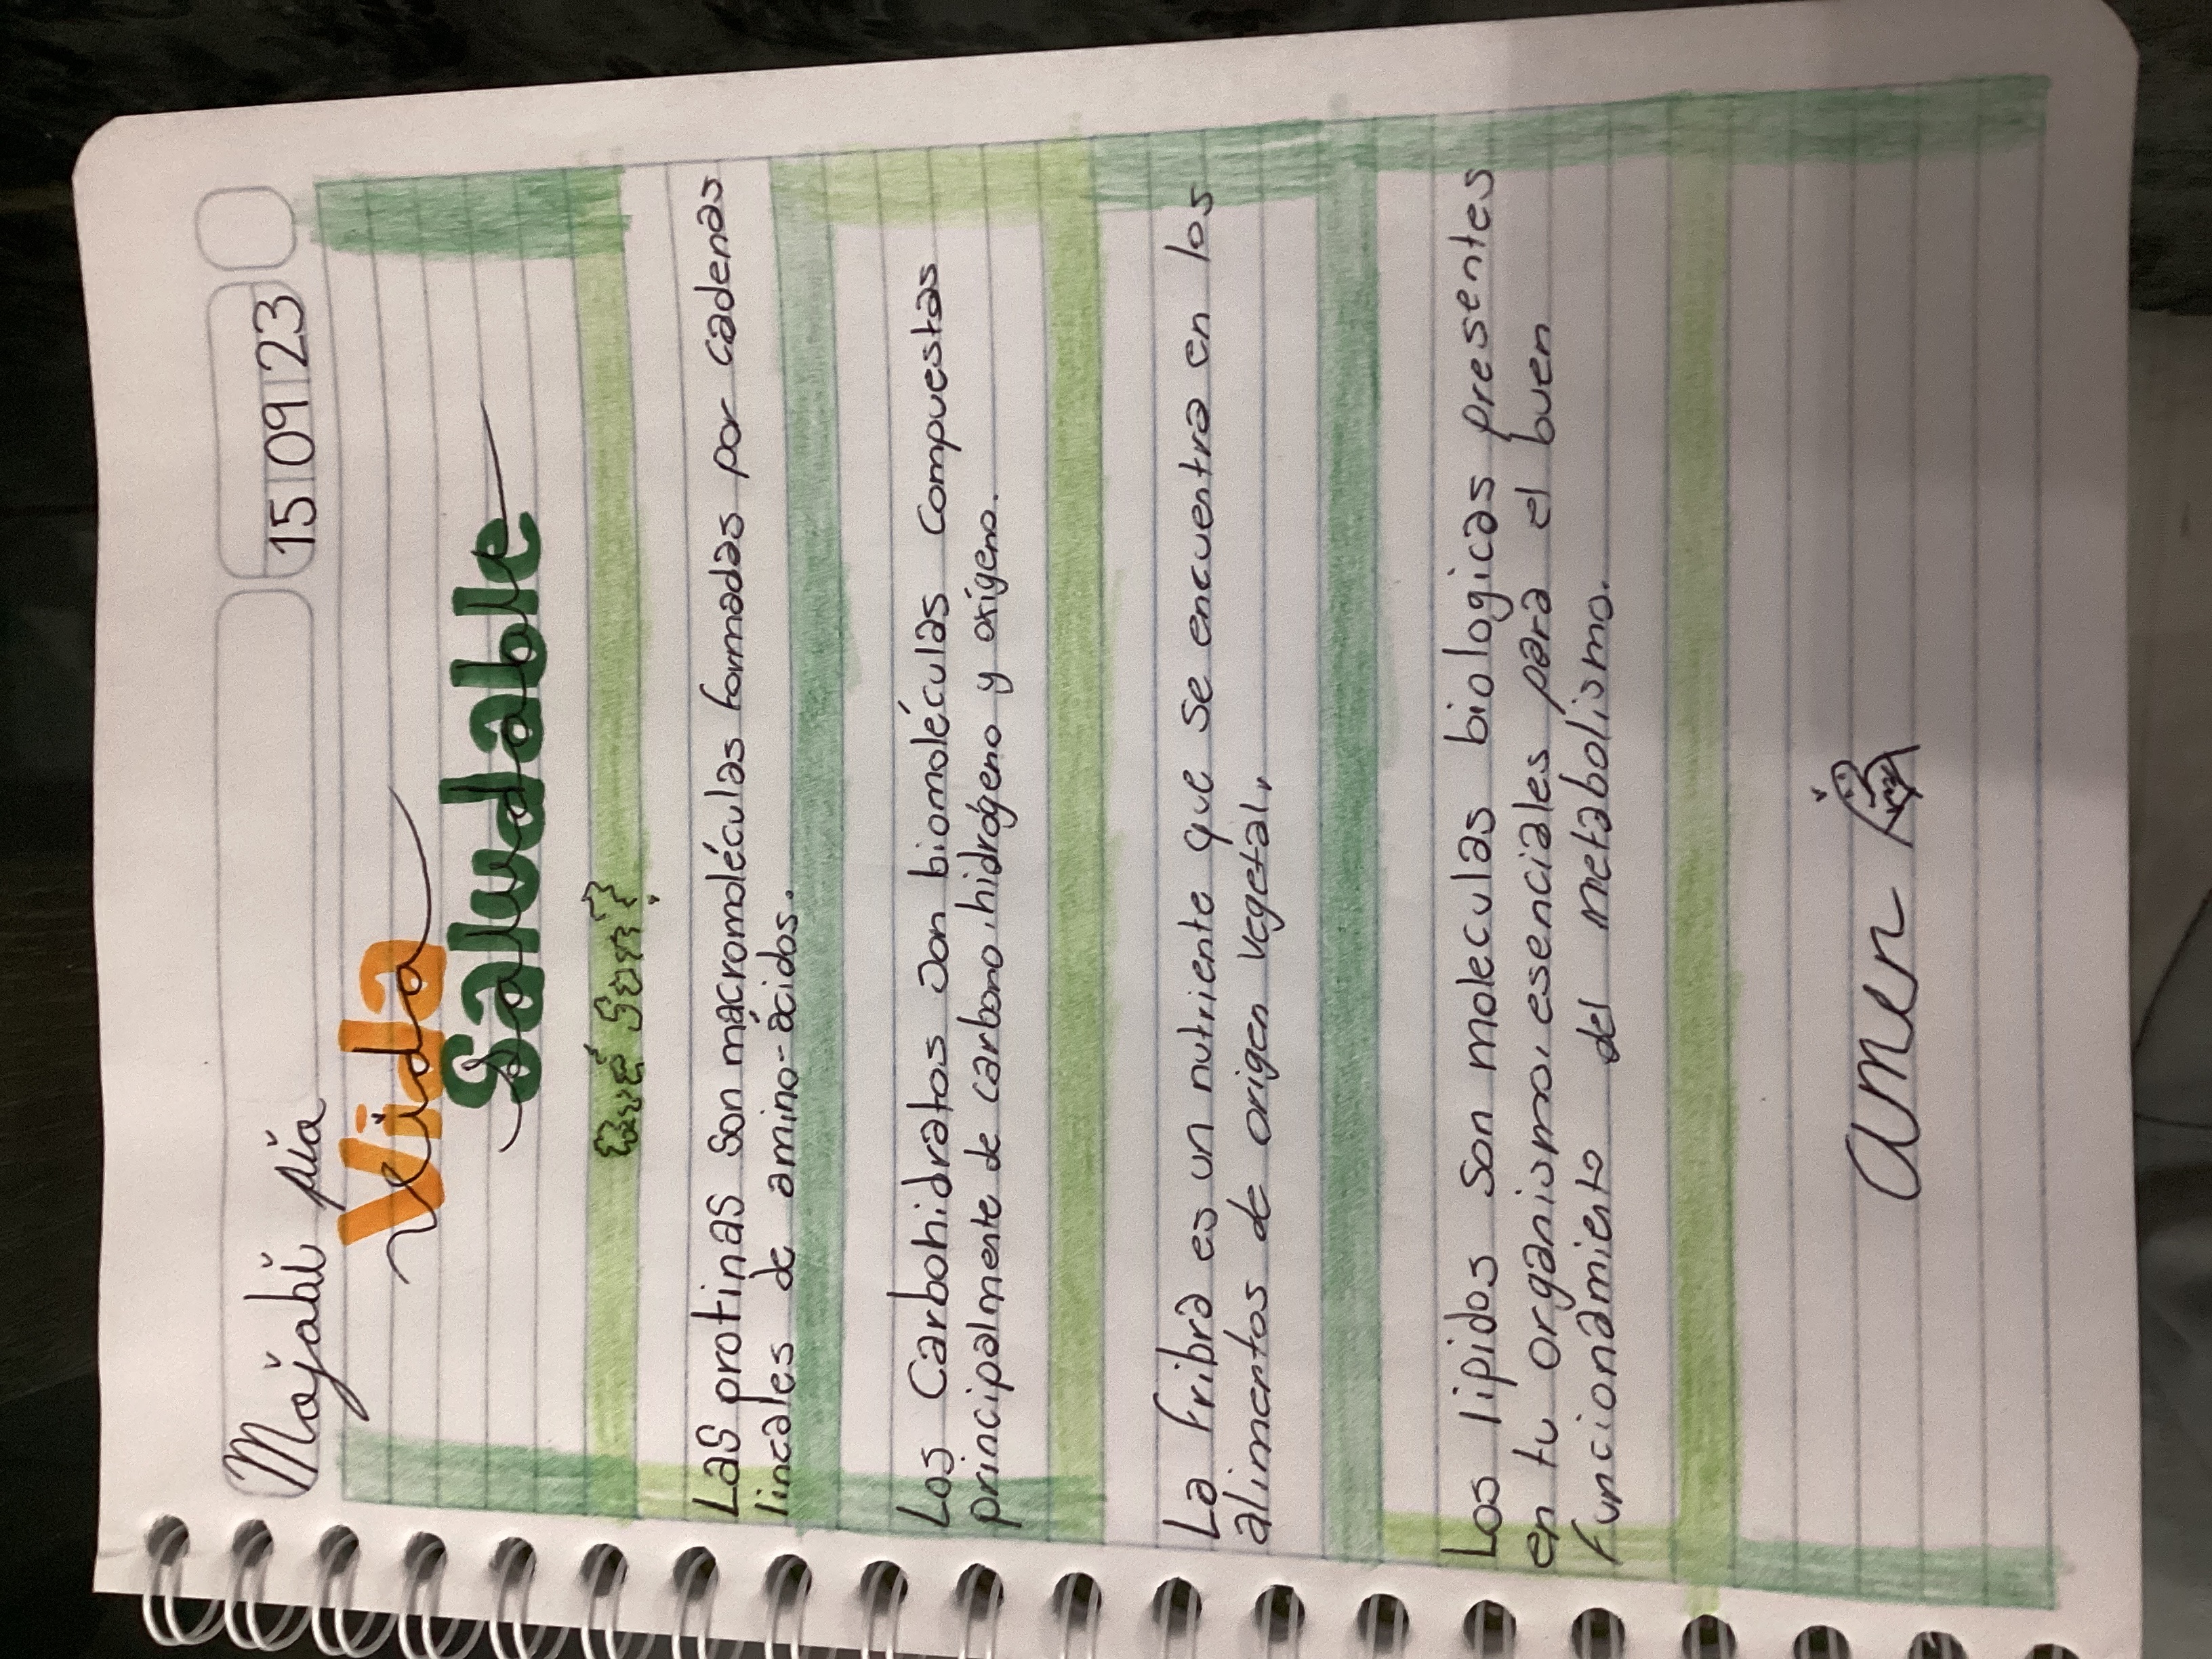 Majahi pía
15 09 23
Vida
Saludable
¿Qué Son?
Las protinas Son mácromoléculas formadas por cadenas
lineales de amino-ácidos.
Los Carbohidratos son biomoléculas compuestas
principalmente de carbono, hidrógeno y oxígeno.
La fribra es un nutriente que se encuentra en los
alimentos de origen vegetal,
Los lipidos son moleculas biologicas presentes
en tu organismo, esenciales para el buen
funcionamiento del metabolismo.
amen